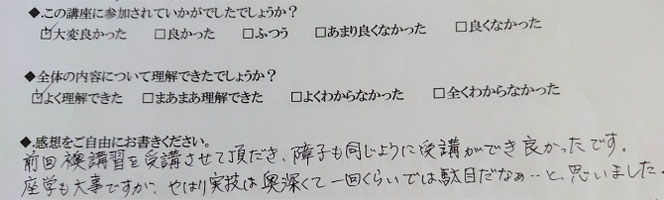 ◆.この講座に参加されていかがでしたでしょうか？
☑大変良かった　□良かった　□ふつう　□あまり良くなかった　□良くなかった
◆.全体の内容について理解できたでしょうか？
☑よく理解できた　□まあまあ理解できた　□よくわからなかった　□全くわからなかった
◆.感想をご自由にお書きください。
前回襖講習を受講させて頂だき、障子も同じように受講ができ良かったです。
座学も大事ですが、やはり実技は奥深くて一回くらいでは駄目だなぁ…と、思いました。